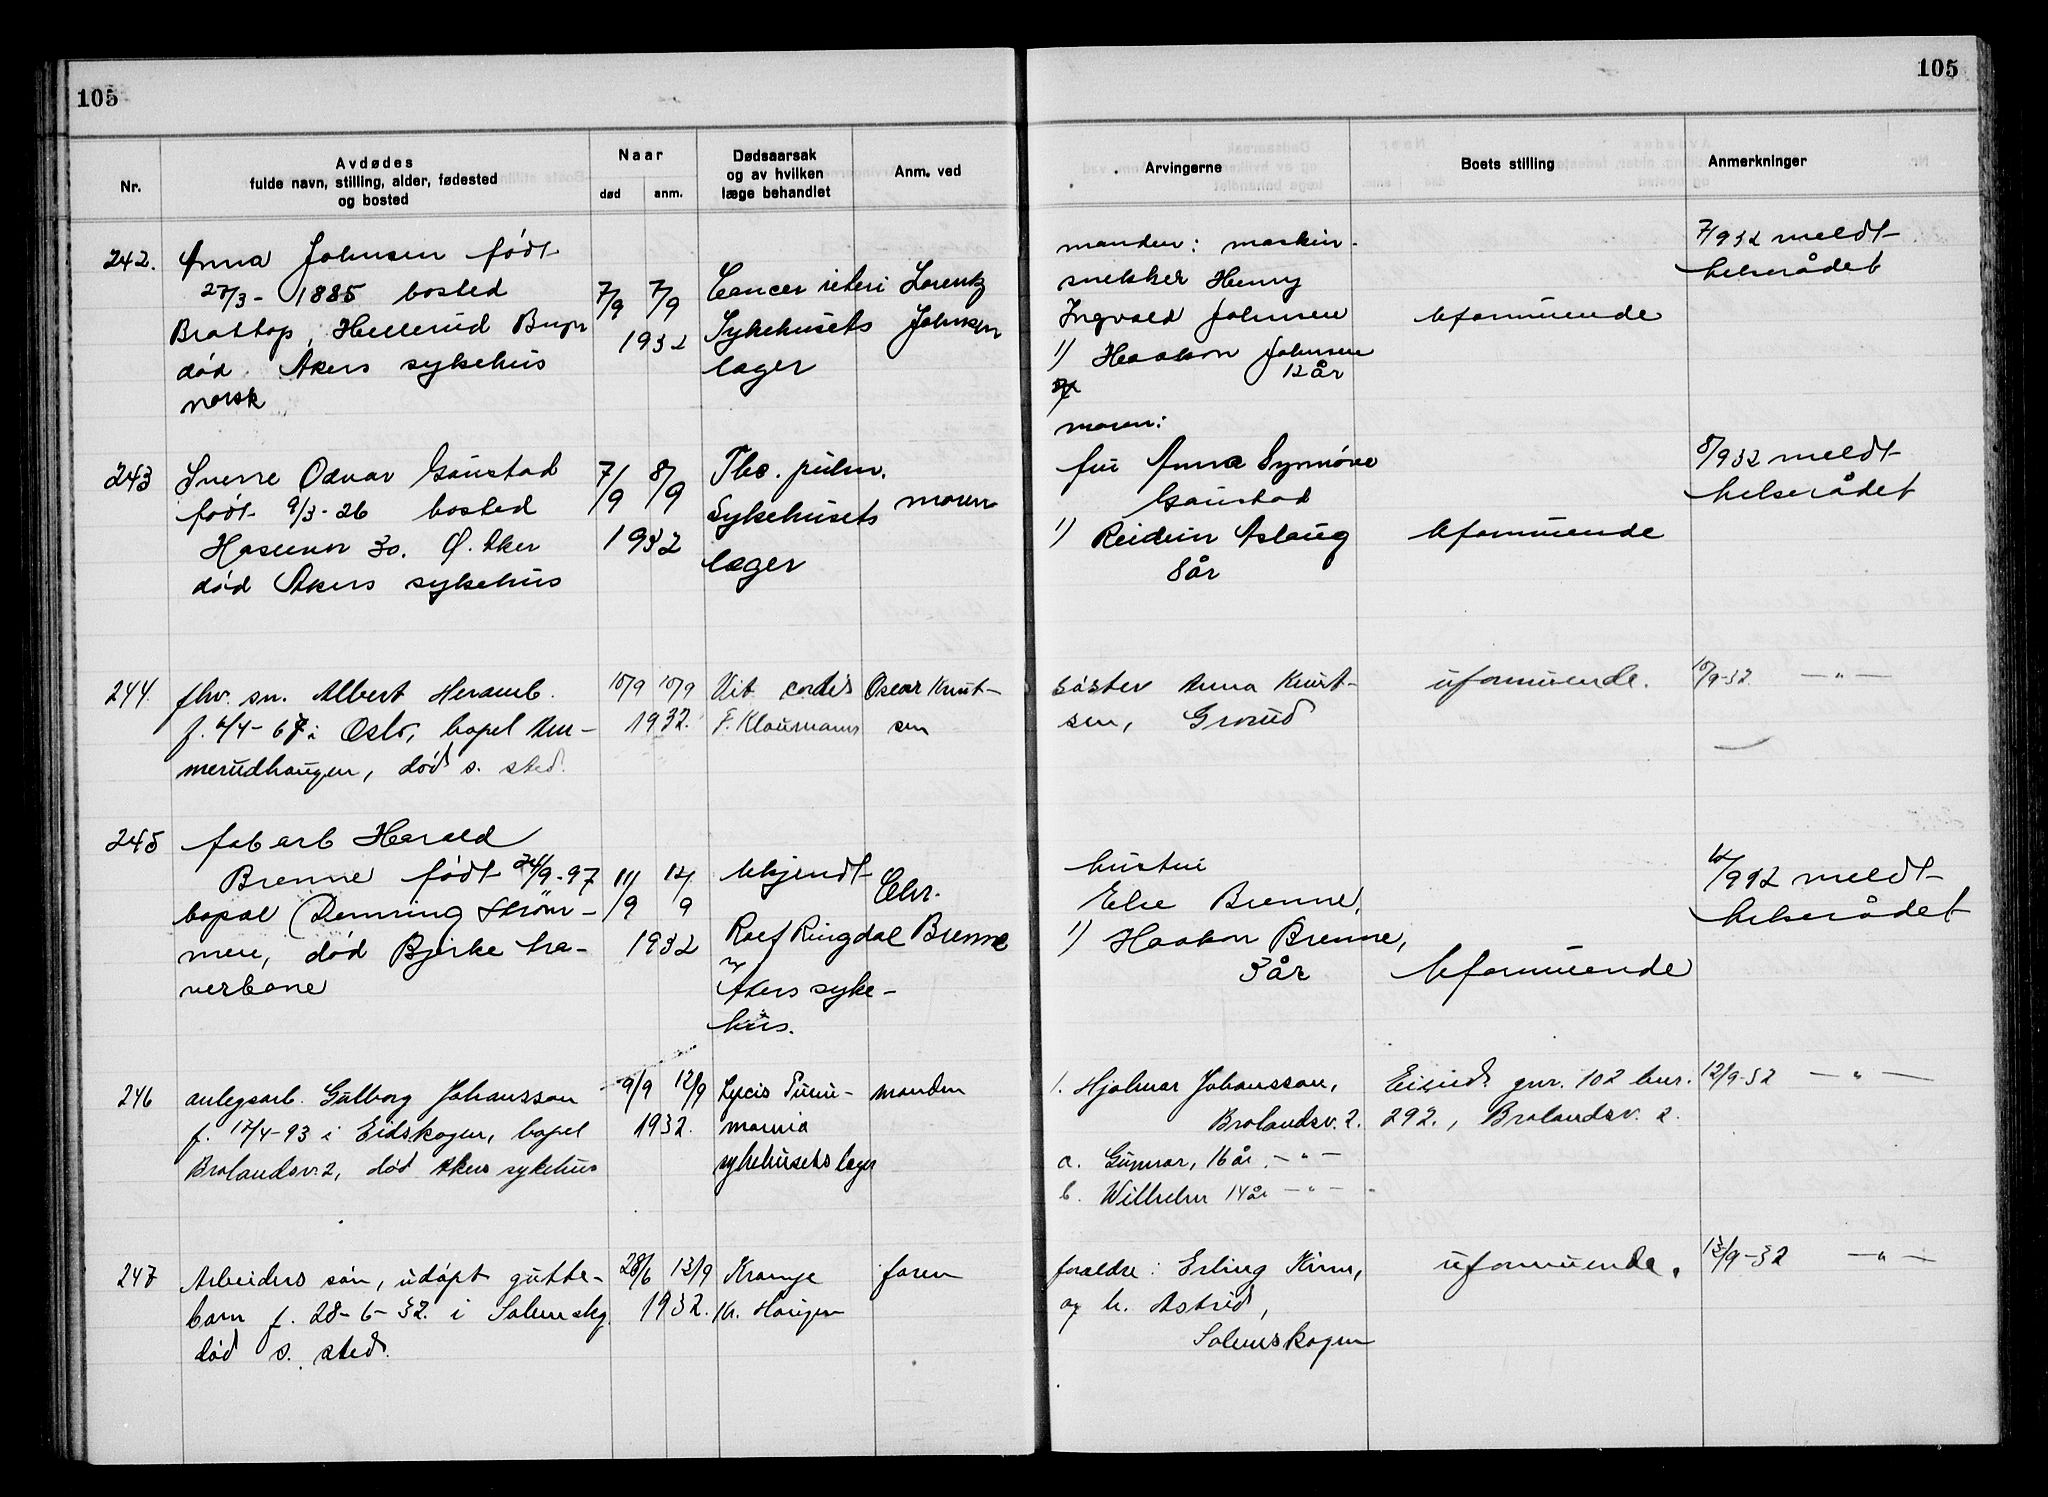 105
Nr.
Avdødes
fulde navn, stilling, alder, fødested
og bosted
Naar
død
anm.
Dødsaarsak
og av hvilken
læge behandlet
Anm. ved
242.
Anna Johnsen født
27/3 - 1885 bosted
Brattop, Hellerud
død Akers sykehus
norsk
7/9 7/9
1932
Cancer uteri
Sykehusets
læger
Lorentz
Johnsen
243
Sverre Odvar Gaustad
født 9/3-26 bosted
30. Ø. Aker
død Akers sykehus
7/9 8/9
1932
Tbc. pulm.
Sykehusets
læger
moren
244.
fhv. sn. Albert Heramb.
i Oslo, bopel Am-
merudhaugen, død s. sted.
10/9 10/9
1932.
Vit. cordis
F. Klaumann
Oscar Knut-
sen
245
fab arb Harald
Brenne født 24/9-97
bopæl Strøm-
mere, død Bjerke tra-
verbane
11/9 12/9
1932
Ukjendt
Rolf Ringdal
Akers syke-
hus.
Chr.
Brenne
246
anlegsarb. Gulborg Johansson
f. 17/4-93 i Eidskogen, bopel
Brolandsv. 2, død Akers sykehus
9/9 12/9
1932.
sykehusets læger
manden
247
Arbeiders søn, udøpt gutte-
barn f. 28-6-32. i Solemskg.
død s. sted.
28/6 12/9
1932.
Krampe
Kr. Haugen
faren
105
Arvingerne
Boets stilling
Anmerkninger
manden: maskin-
snekker Henry
Ingvald Johnsen
1) Haakon Johnsen
12 år
Uformuende
7/9 32 meldt
helserådet
moren:
fru Anna Synnøve
Gaustad
1) Reidun Aslaug
8 år
Uformuende
8/9 32 meldt
helserådet
søster Anna Knut-
sen, Grorud
uformuende.
10/9-32 — " —
hustru
Else Brenne,
1) Haakon Brenne,
3 år
Uformuende
meldt
helserådet
1. Hjalmar Johansson,
Brolandsv. 2.
a. Gunnar, 16 år — " —
b. Wilhelm 14 år — " —
Eiend. gnr. 102 bnr.
292., Brolandsv. 2.
12/9-32 — " —
foreldre: Erling Kinn,
og h. Astrid,
Solemskogen
uformuende.
— " —